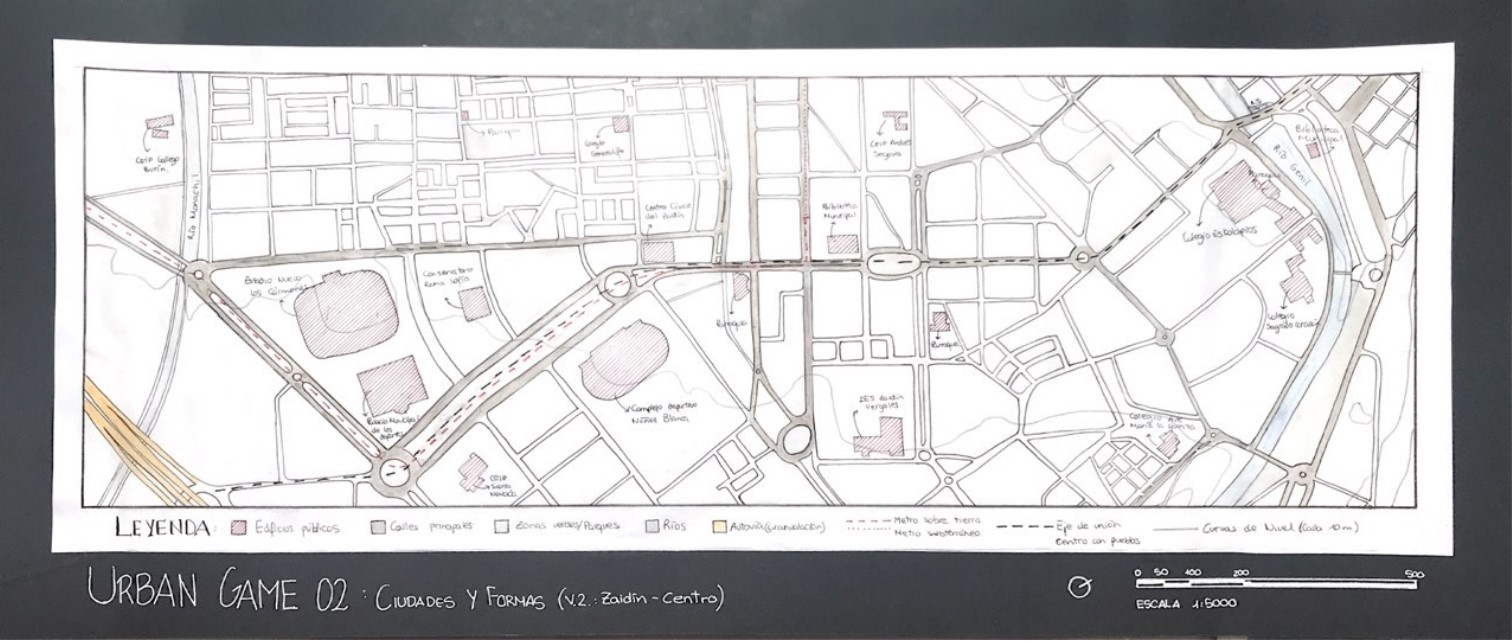 CEIP Gallego
Burín
Río Monachil
Parroquia
Colegio
Generalife
CEIP Andrés
Segovia
Biblioteca
Municipal
Río Genil
Centro Cívico
del Zaidín
Biblioteca
Municipal
Colegio Escolapios
Estadio Nuevo
Los Cármenes
Conservatorio
Reina Sofía
Parroquia
Parroquia
Colegio
Sagrado Corazón
Palacio Municipal
de los
deportes
Complejo deportivo
Núñez Blanca
IES Zaidín
Vergeles
CEIP
LEYENDA:
Edificios públicos
Calles principales
Zonas verdes/Parques
Ríos
Autovía (circunvalación)
Metro sobre tierra
Metro subterráneo
Eje de unión
centro con pueblos
Curvas de Nivel (Cada 10m)
URBAN GAME 02: CIUDADES Y FORMAS (V.2.: Zaidín - Centro)
0 50 100 200 500
ESCALA 1:5000